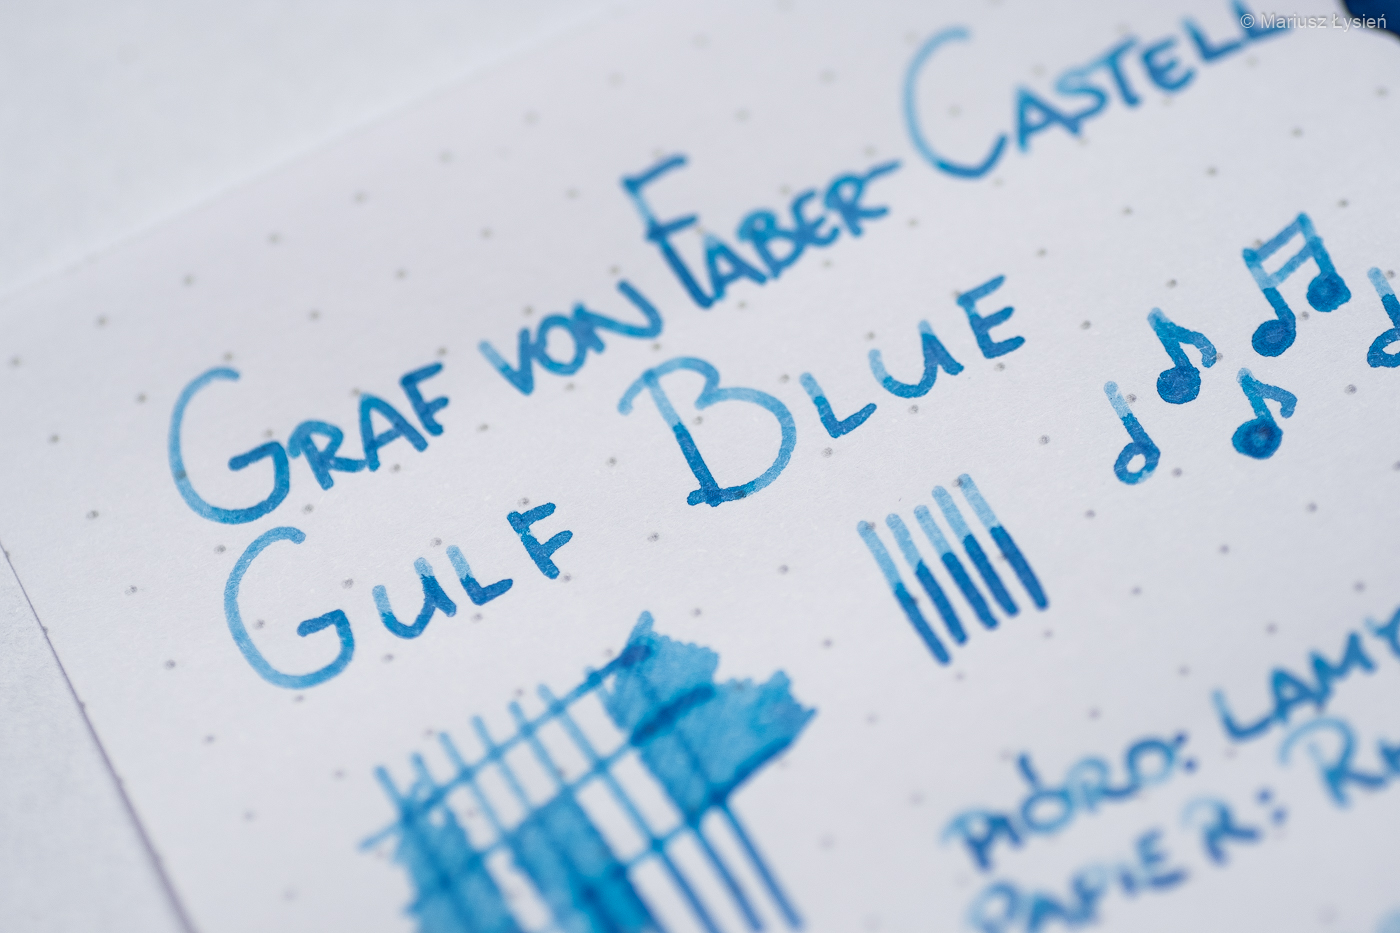 © Mariusz Łysień
GRAF VON FABER-CASTELL
GULF BLUE
PIÓRO: LAMY
PAPIER: